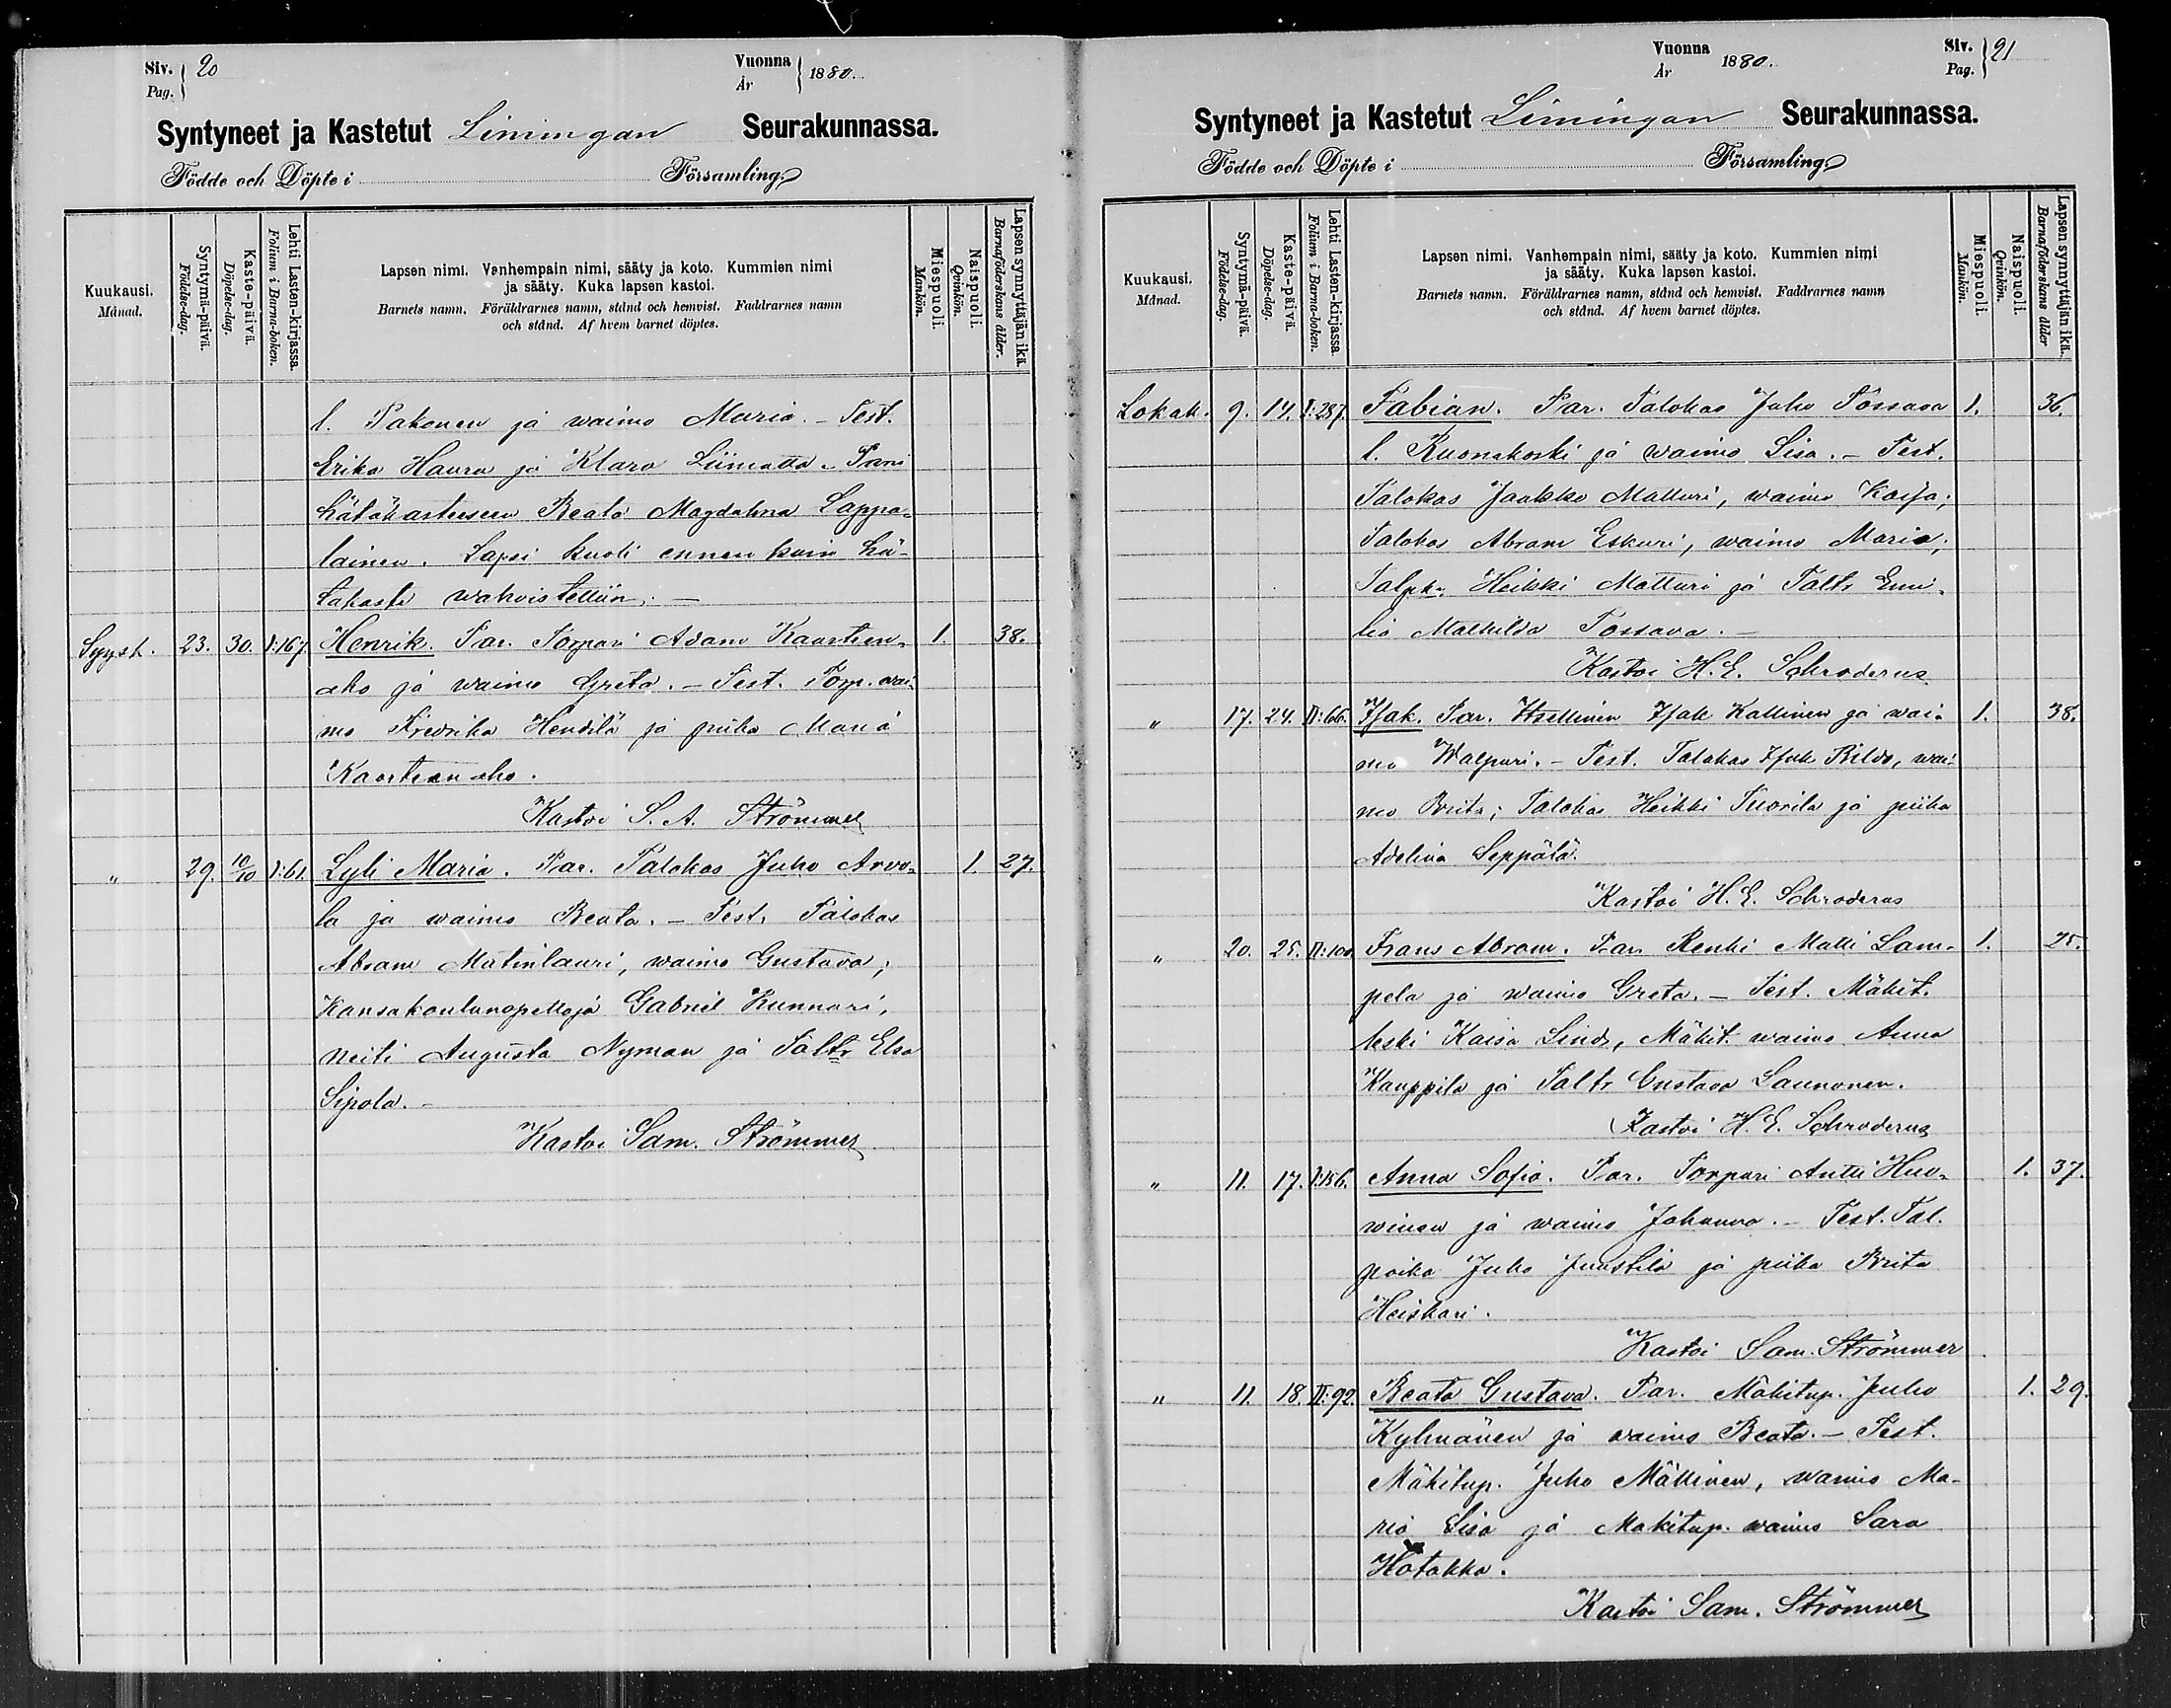 Siv. Pag. 20
Vuonna År 1880.
Syntyneet ja Kastetut Limingan Seurakunnassa.
Födde och Döpte i Församling.
Kuukausi. Månad.
Syntymä-päivä. Födelse-dag.
Kaste-päivä. Döpelse-dag.
Lehti Lasten-kirjassa. Folium i Barna-boken.
Lapsen nimi. Vanhempain nimi, sääty ja koto. Kummien nimi
ja sääty. Kuka lapsen kastoi.
Barnets namn. Föräldrarnes namn, stånd och hemvist. Faddrarnes namn
och stånd. Af hvem barnet döptes.
Miespuoli. Mankön.
Naispuoli. Qvinkön.
Lapsen synnyttäjän ikä. Barnaföderskans ålder.
l. Pakonen ja waimo Maria. - Test.
Erika Haura ja Klara Liimatta. Pani
hätäkasteeseen Beata Magdalena Lappa-
lainen. Lapsi kuoli ennen kuin hä-
täkaste wahvistettiin. -
Syysk. 23. 30. I:167. Henrik. Par. Torpari Adam Kaarteen- 1. 38.
aho ja waimo Greta. - Test. Torp. wai-
mo Fredrika Hendilä ja piika Maria
Kaarteenaho.
Kastoi S. A. Strömmer
" 29. 10/10 I:61. Lyli Maria. Par. Talokas Juho Arvo- 1. 27.
la ja waimo Beata. - Test. Talokas
Abram Matinlauri, waimo Gustava;
Kansakoulunopettaja Gabriel Kunnari,
neiti Augusta Nyman ja Taltr Elsa
Sipola. -
Kastoi Sam. Strömmer
Siv. Pag. 21
Vuonna År 1880.
Syntyneet ja Kastetut Limingan Seurakunnassa.
Födde och Döpte i Församling.
Kuukausi. Månad.
Syntymä-päivä. Födelse-dag.
Kaste-päivä. Döpelse-dag.
Lehti Lasten-kirjassa. Folium i Barna-boken.
Lapsen nimi. Vanhempain nimi, sääty ja koto. Kummien nimi
ja sääty. Kuka lapsen kastoi.
Barnets namn. Föräldrarnes namn, stånd och hemvist. Faddrarnes namn
och stånd. Af hvem barnet döptes.
Miespuoli. Mankön.
Naispuoli. Qvinkön.
Lapsen synnyttäjän ikä. Barnaföderskans ålder
Lokak. 9. 14. I:287. Fabian. Par. Talokas Juho Tossava 1. 36.
l. Kuonakoski ja waimo Lisa. - Test.
Talokas Jaakko Matturi, waimo Kaisa;
Talokas Abram Eskuri, waimo Maria;
Talpka Heikki Matturi ja Taltr Emi-
lia Mathilda Tossava. -
Kastoi H. E. Schroderus
" 17. 24. II:66. Isak. Par. Itsellinen Isak Kallinen ja wai- 1. 38.
mo Walpuri. - Test. Talokas Isak Bildo, wai-
mo Brita; Talokas Heikki Tuorila ja piika
Adelina Seppälä.
Kastoi H. E. Schroderus
" 20. 25. II:100. Frans Abram. Par. Renki Matti Lam- 1. 25.
pela ja waimo Greta. - Test. Mäkit.
leski Kaisa Lind, Mäkit. waimo Anna
Kauppila ja Taltr Gustava Launonen.
Kastoi H. E. Schroderus
" 11. 17. I:186. Anna Sofia. Par. Torpari Antti Huo- 1. 37.
winen ja waimo Johanna. - Test. Tal.
poika Juho Juustila ja piika Brita
Heiskari.
Kastoi Sam. Strömmer
" 11. 18. II:92. Beata Gustava. Par. Mäkitup. Juho 1. 29.
Kylmänen ja waimo Beata. - Test.
Mäkitup. Juho Mällinen, waimo Ma-
ria Lisa ja Mäkitup. waimo Sara
Hatakka.
Kastoi Sam. Strömmer